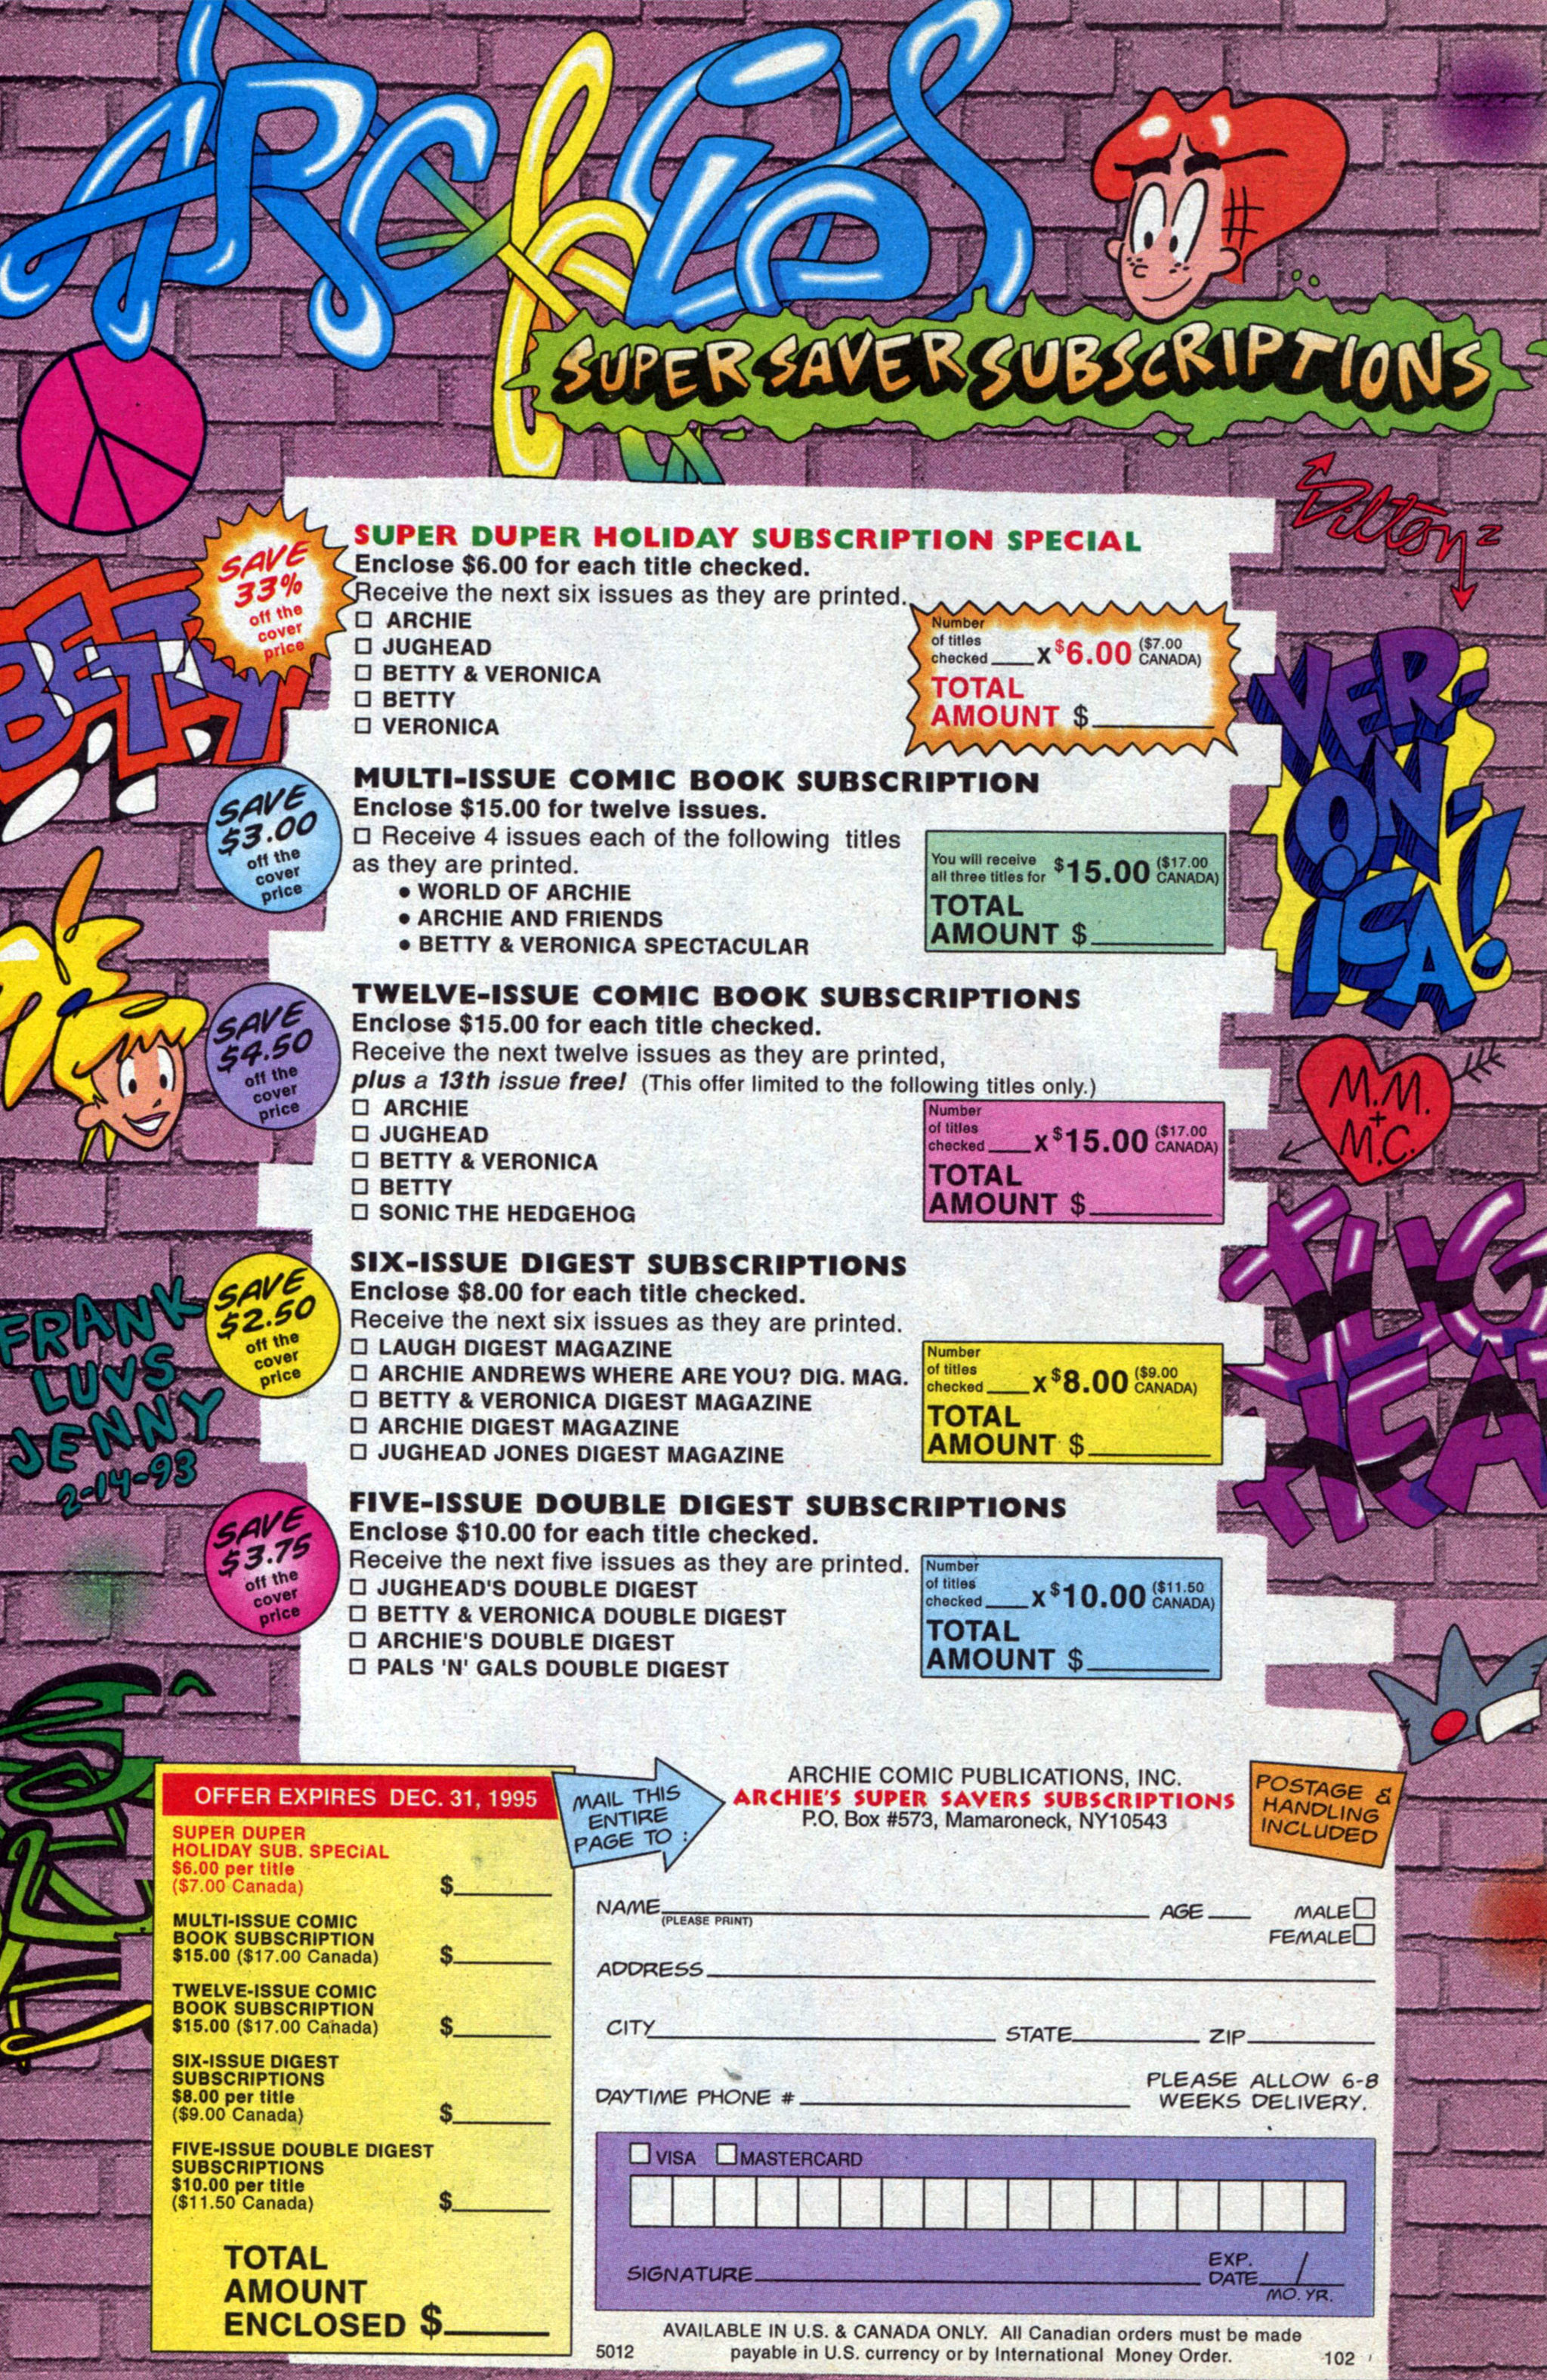 ARCHIE'S
SUPER SAVER SUBSCRIPTIONS
Dilton 2
BETTY
SAVE
33%
off the
cover
price
SUPER DUPER HOLIDAY SUBSCRIPTION SPECIAL
Enclose $6.00 for each title checked.
Receive the next six issues as they are printed.
☐ ARCHIE
☐ JUGHEAD
☐ BETTY & VERONICA
☐ BETTY
☐ VERONICA
Number
of titles
checked ____ x $6.00 ($7.00
CANADA)
TOTAL
AMOUNT $________
VER-
ON-
ICA!
SAVE
$3.00
off the
cover
price
MULTI-ISSUE COMIC BOOK SUBSCRIPTION
Enclose $15.00 for twelve issues.
☐ Receive 4 issues each of the following titles
as they are printed.
• WORLD OF ARCHIE
• ARCHIE AND FRIENDS
• BETTY & VERONICA SPECTACULAR
You will receive
all three titles for $15.00 ($17.00
CANADA)
TOTAL
AMOUNT $________
SAVE
$4.50
off the
cover
price
TWELVE-ISSUE COMIC BOOK SUBSCRIPTIONS
Enclose $15.00 for each title checked.
Receive the next twelve issues as they are printed,
plus a 13th issue free! (This offer limited to the following titles only.)
☐ ARCHIE
☐ JUGHEAD
☐ BETTY & VERONICA
☐ BETTY
☐ SONIC THE HEDGEHOG
Number
of titles
checked ____ x $15.00 ($17.00
CANADA)
TOTAL
AMOUNT $________
M.M.
+
M.C.
JUG
HEA
FRANK
LUVS
JENNY
2-14-93
SAVE
$2.50
off the
cover
price
SIX-ISSUE DIGEST SUBSCRIPTIONS
Enclose $8.00 for each title checked.
Receive the next six issues as they are printed.
☐ LAUGH DIGEST MAGAZINE
☐ ARCHIE ANDREWS WHERE ARE YOU? DIG. MAG.
☐ BETTY & VERONICA DIGEST MAGAZINE
☐ ARCHIE DIGEST MAGAZINE
☐ JUGHEAD JONES DIGEST MAGAZINE
Number
of titles
checked ____ x $8.00 ($9.00
CANADA)
TOTAL
AMOUNT $________
SAVE
$3.75
off the
cover
price
FIVE-ISSUE DOUBLE DIGEST SUBSCRIPTIONS
Enclose $10.00 for each title checked.
Receive the next five issues as they are printed.
☐ JUGHEAD'S DOUBLE DIGEST
☐ BETTY & VERONICA DOUBLE DIGEST
☐ ARCHIE'S DOUBLE DIGEST
☐ PALS 'N' GALS DOUBLE DIGEST
Number
of titles
checked ____ x $10.00 ($11.50
CANADA)
TOTAL
AMOUNT $________
OFFER EXPIRES DEC. 31, 1995
SUPER DUPER
HOLIDAY SUB. SPECIAL
$6.00 per title
($7.00 Canada) $________
MULTI-ISSUE COMIC
BOOK SUBSCRIPTION
$15.00 ($17.00 Canada) $________
TWELVE-ISSUE COMIC
BOOK SUBSCRIPTION
$15.00 ($17.00 Canada) $________
SIX-ISSUE DIGEST
SUBSCRIPTIONS
$8.00 per title
($9.00 Canada) $________
FIVE-ISSUE DOUBLE DIGEST
SUBSCRIPTIONS
$10.00 per title
($11.50 Canada) $________
TOTAL
AMOUNT
ENCLOSED $________
MAIL THIS
ENTIRE
PAGE TO :
ARCHIE COMIC PUBLICATIONS, INC.
ARCHIE'S SUPER SAVERS SUBSCRIPTIONS
P.O. Box #573, Mamaroneck, NY10543
POSTAGE &
HANDLING
INCLUDED
NAME________ AGE____ MALE☐
(PLEASE PRINT)
FEMALE☐
ADDRESS________
CITY________ STATE________ ZIP________
DAYTIME PHONE #________
PLEASE ALLOW 6-8
WEEKS DELIVERY.
☐ VISA ☐ MASTERCARD
SIGNATURE________ EXP.
DATE___/___
MO. YR.
AVAILABLE IN U.S. & CANADA ONLY. All Canadian orders must be made
payable in U.S. currency or by International Money Order.
5012
102